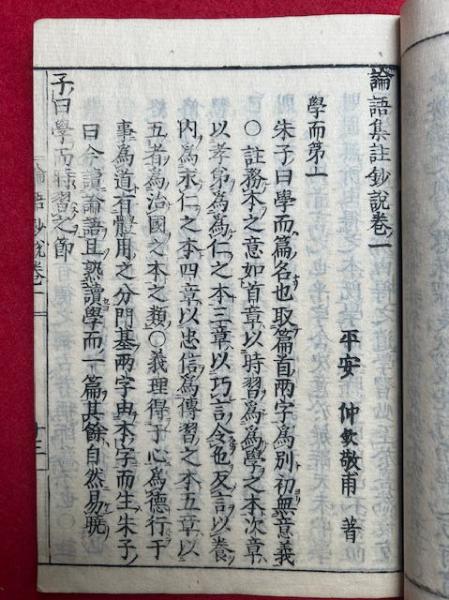 論語集註鈔說卷一
平安 仲欽敬甫 著
學而第一
朱子曰學而篇名也取篇首兩字爲別初無意義
○註務本之意如首章以時習爲爲學之本次章
以孝弟爲爲仁之本三章以巧言令色反言以養
內爲求仁之本四章以忠信爲傳習之本五章以
五者爲治國之本之類○義理得于心爲德行于
事爲道有體用之分門基兩字由本字而生朱子
曰今讀論語且熟讀學而一篇其餘自然易曉
子曰學而時習之節